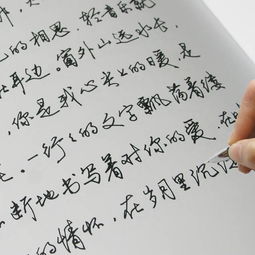 的相思,轻音乐
耳边。窗外山远水长,
你是我心尖上的暖,是
一行行的文字飘荡着缕
断地书写着对你的爱,在
的情怀,在岁月里沉